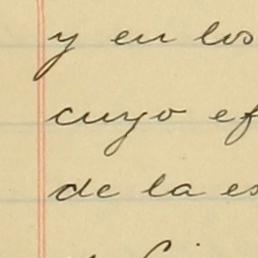 y en los
cuyo ef
de la es